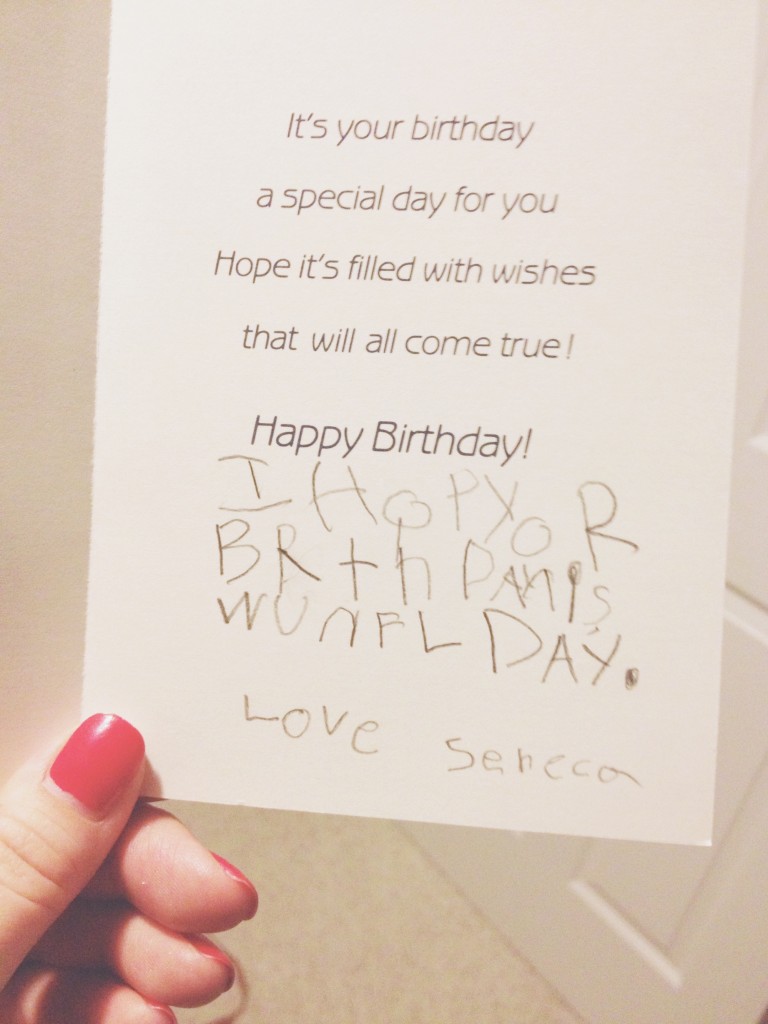 It's your birthday
a special day for you
Hope it's filled with wishes
that will all come true!
Happy Birthday!
I HOPYOR
BRth DAYIS
WUNFL DAY.
Love Seneca